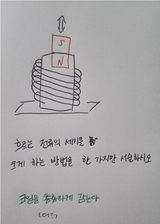 S
N
흐르는 전류의 세기를
크게 하는 방법을 한 가지만 서술하시오
코일을 촘촘하게 감는다